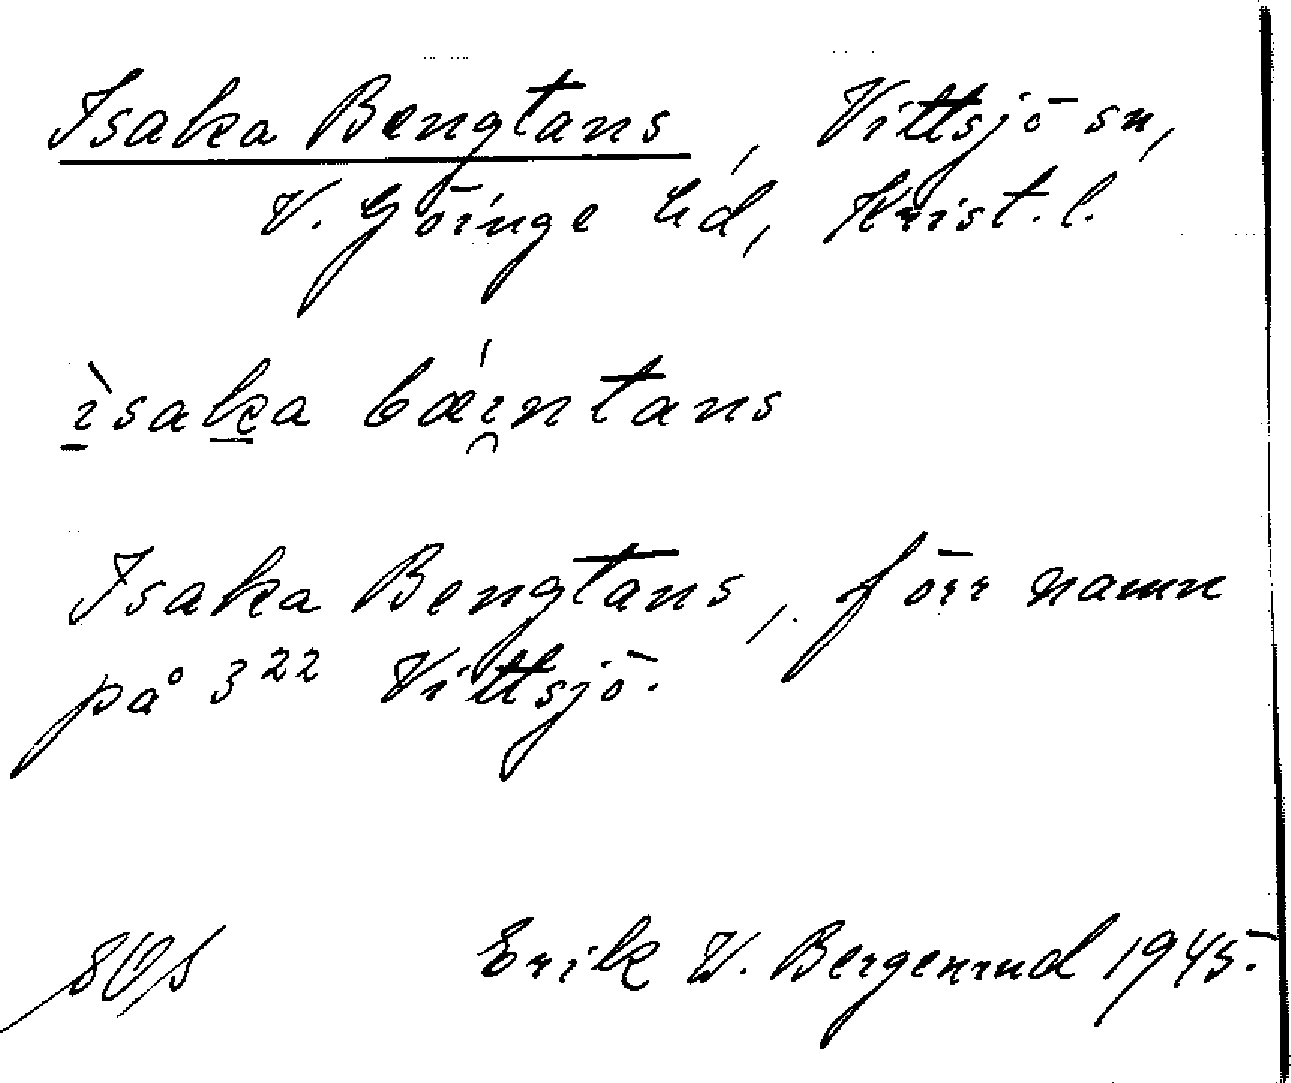 Isaka Bengtans, Vittsjö sn,
V. Göinge hd, Krist. l.
ìsaka bǽi̯ntans
Isaka Bengtans, förr namn
på 3²² Vittsjö.
Erik W. Bergenrud 1945.